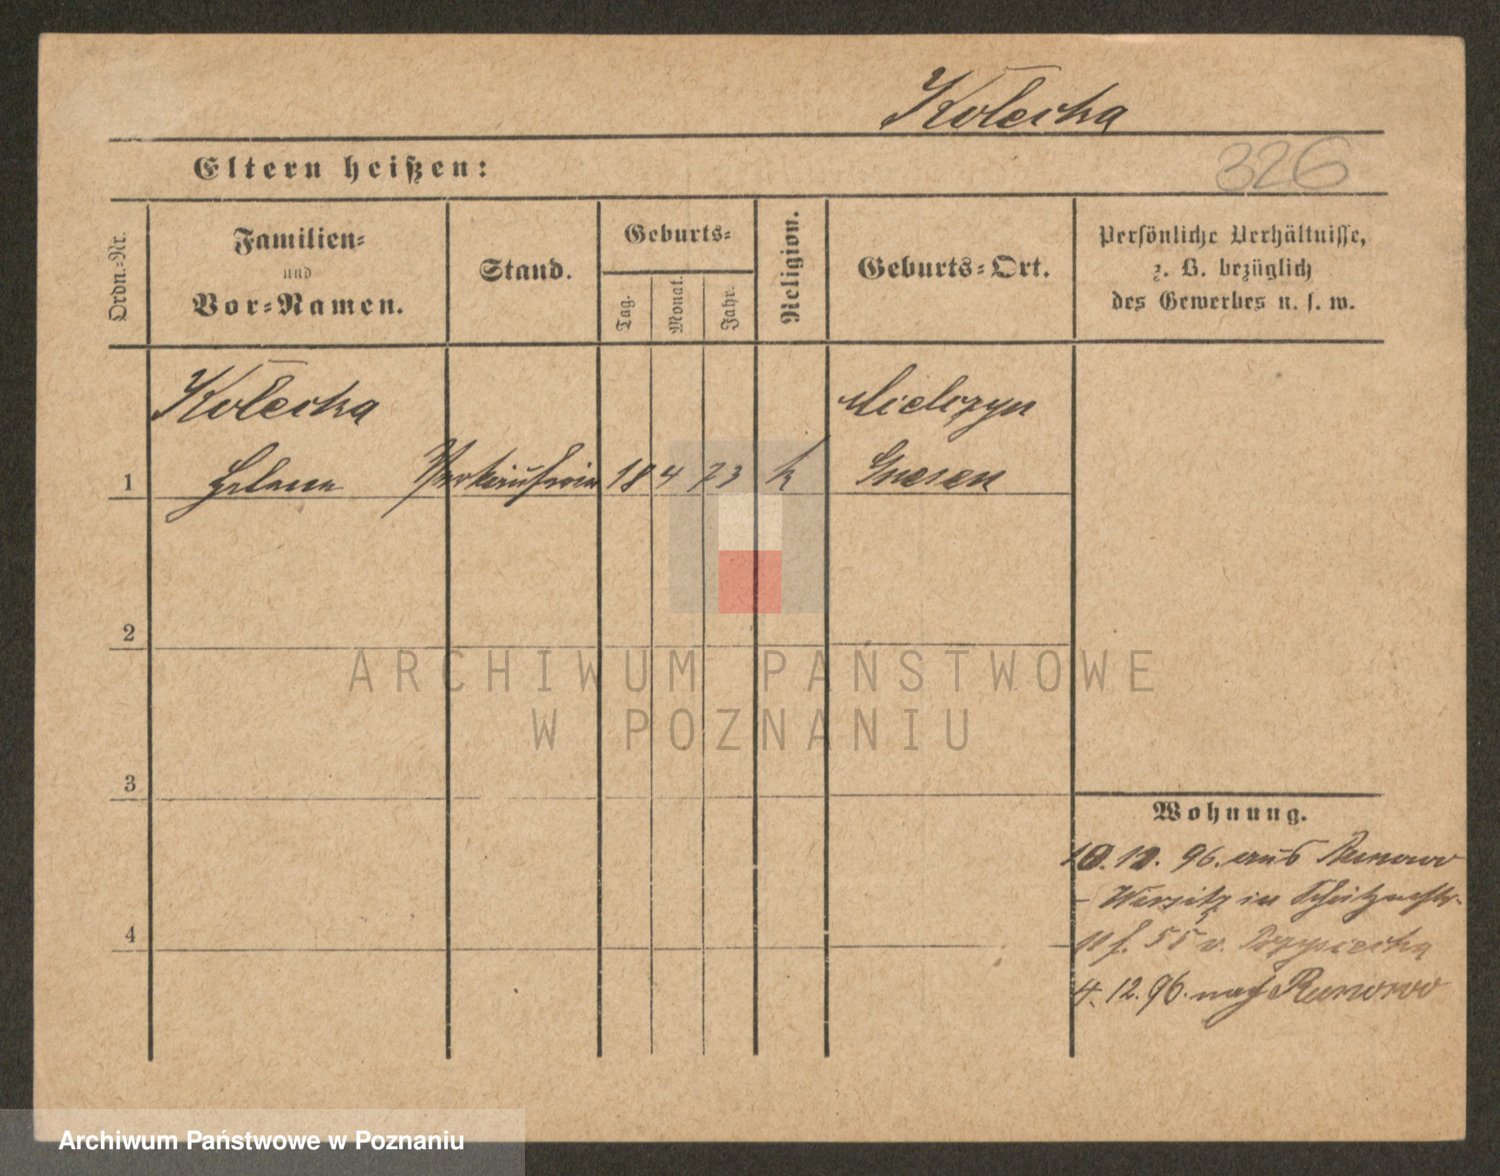 Kolecka
326
Eltern heißen:
Ordn.-Nr.
Familien-
und
Vor-Namen.
Stand.
Geburts-
Tag.
Monat.
Jahr.
Religion.
Geburts-Ort.
Persönliche Verhältnisse,
z. B. bezüglich
des Gewerbes u. s. w.
Kolecka
Mielczyn
1 Helena Verkäuferin 18 4 73 k Gnesen
2
ARCHIWUM PAŃSTWOWE
W POZNANIU
3
Wohnung.
10.10.96. aus Runowo
- Wirsitz in Schützenstr.
4
4.12.96. nach Runowo
Archiwum Państwowe w Poznaniu